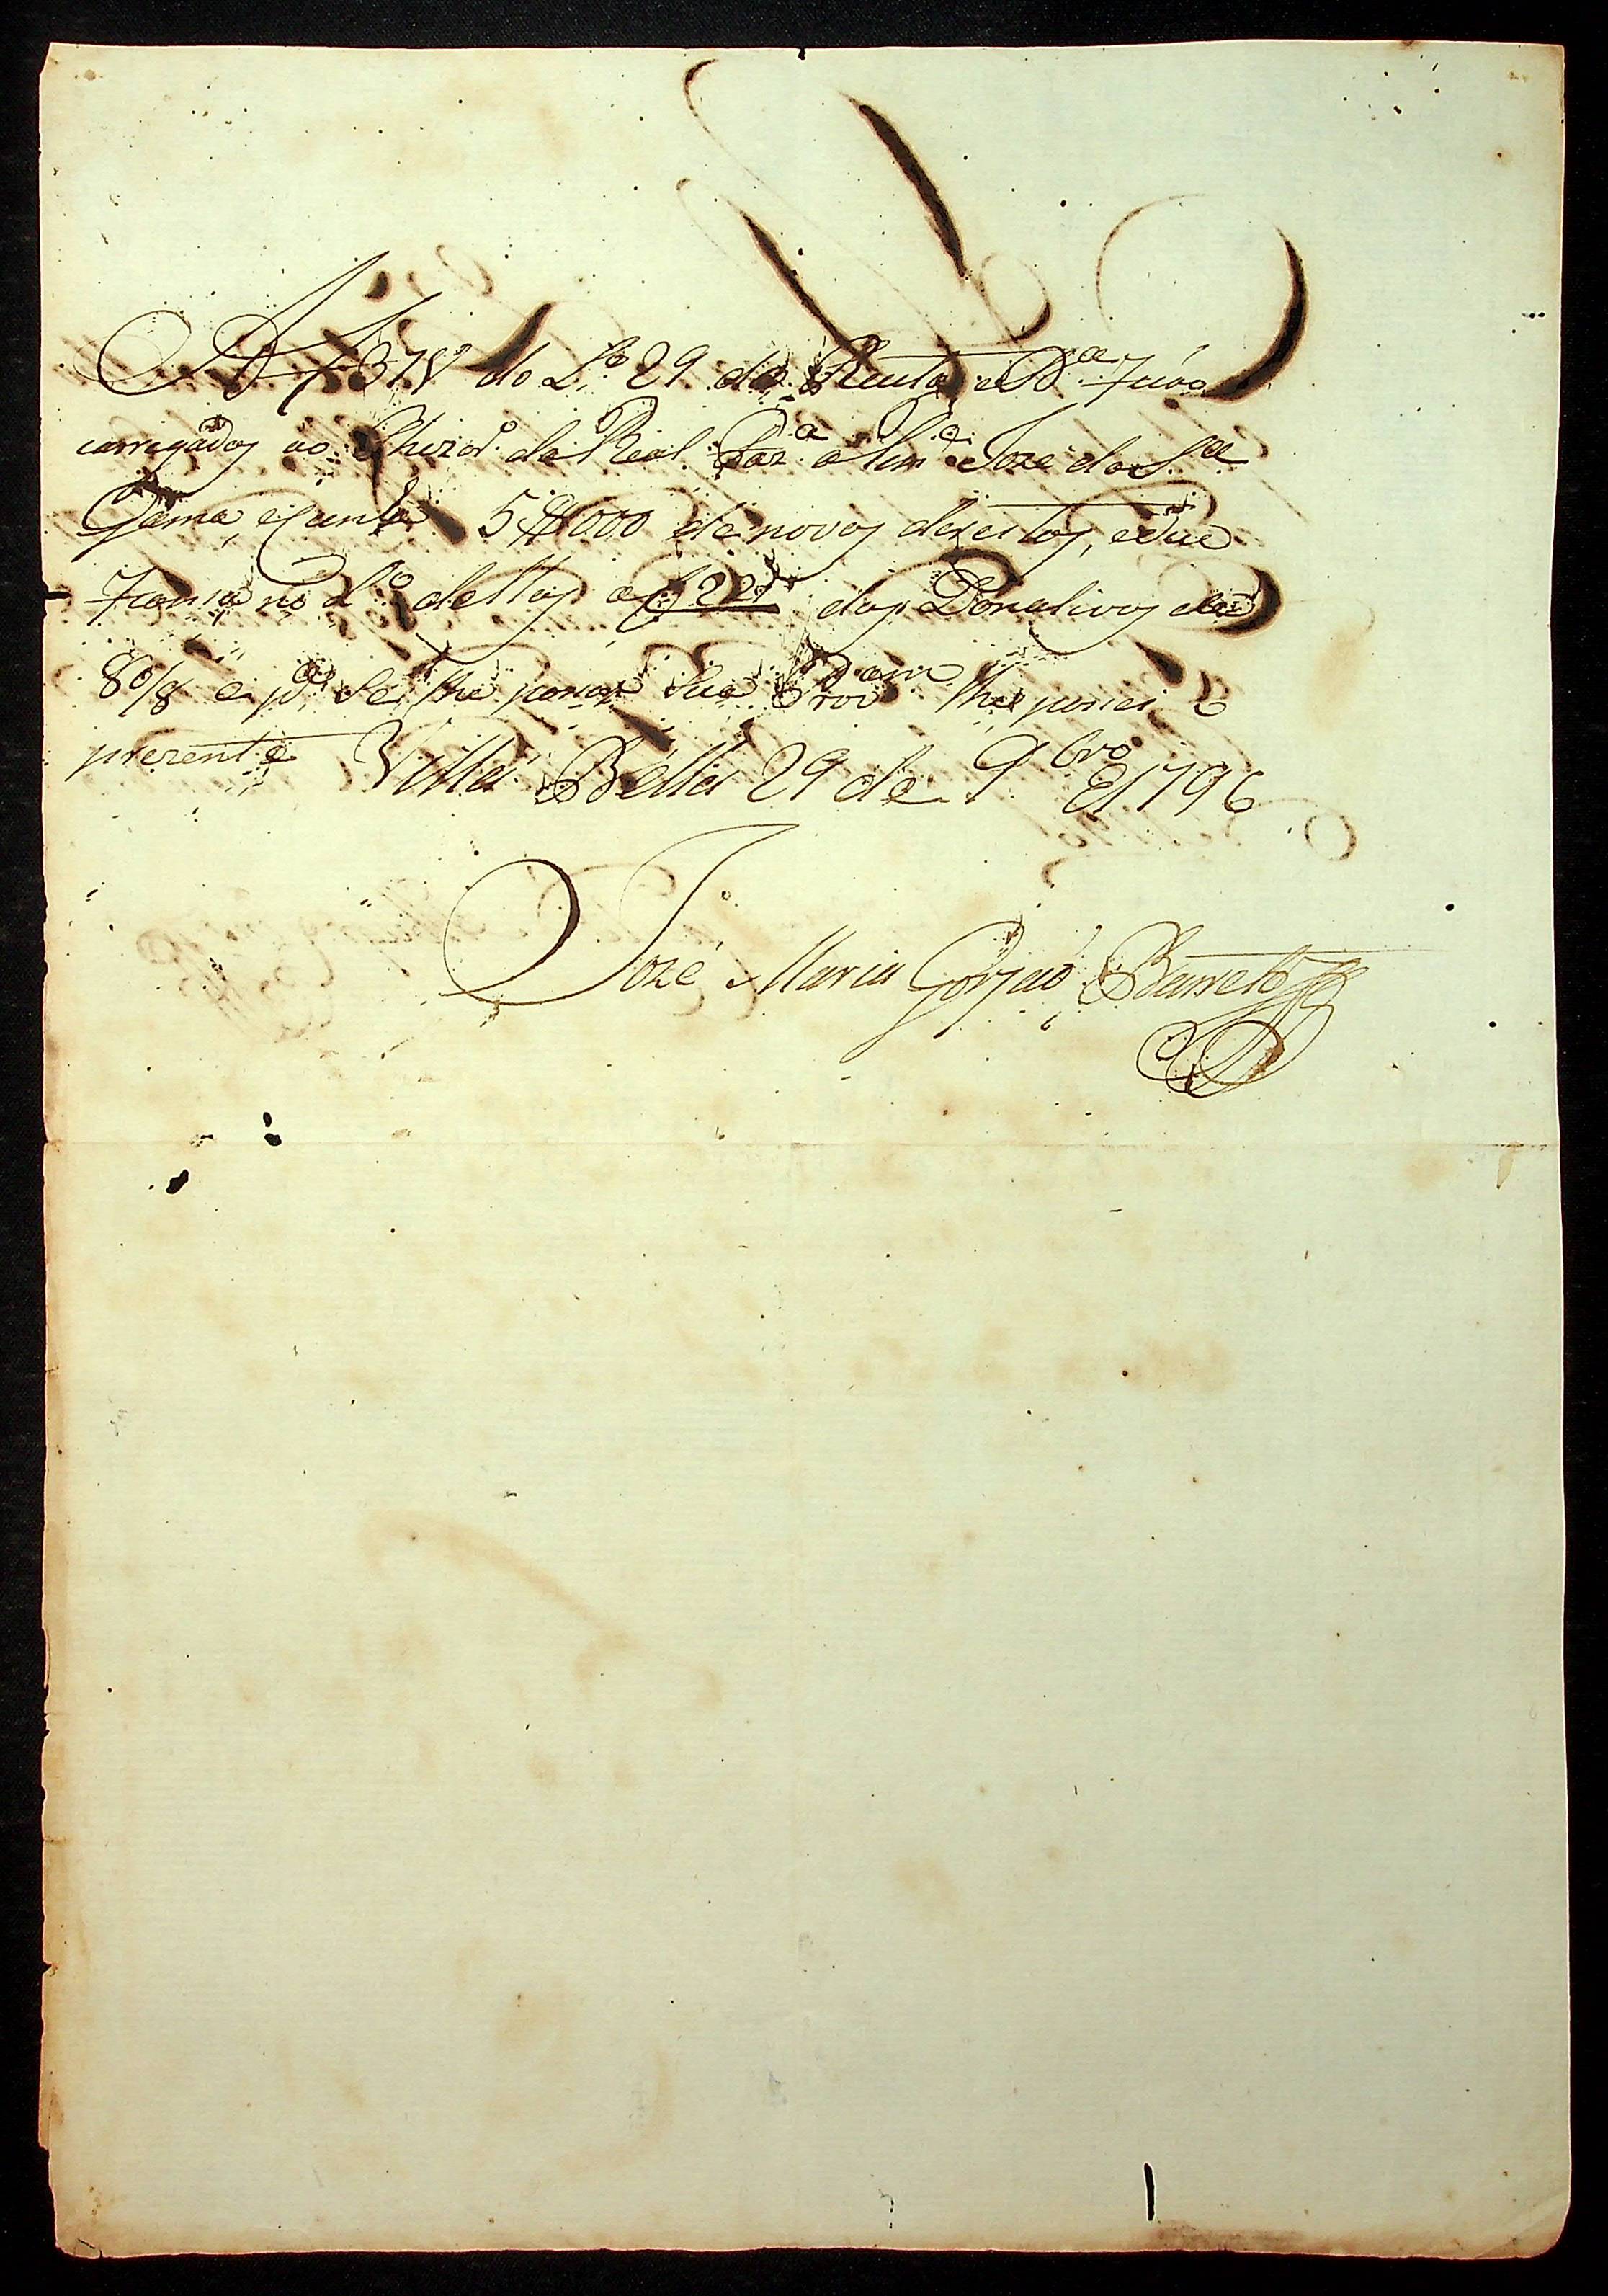 A f 378 do L.º 29 da Receita e D.ª ficão
carregados ao Thezor.º da Real Faz.ª a lem.ᵈᵉ Joze da S.ª
Gama, e junta 5$000 de novos dereitos, e due
fiança no L.º dellas a f 22 dos Donativos de
80/8 e p.ª se lhe passar sua Prov.ᵃᵐ lhe passei a
prezente Villa Bella 29 de 9bro de 1796
Jozé Maria Gorjaõ Barreto